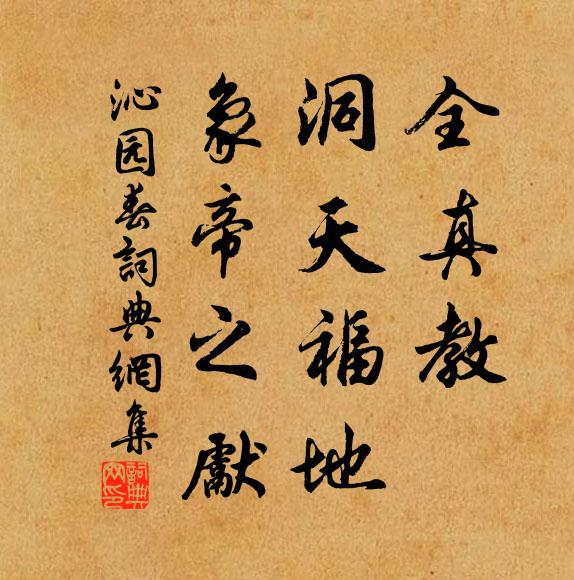 全真教
洞天福地
象帝之獻
沁园春詞典網集
詞典
网印